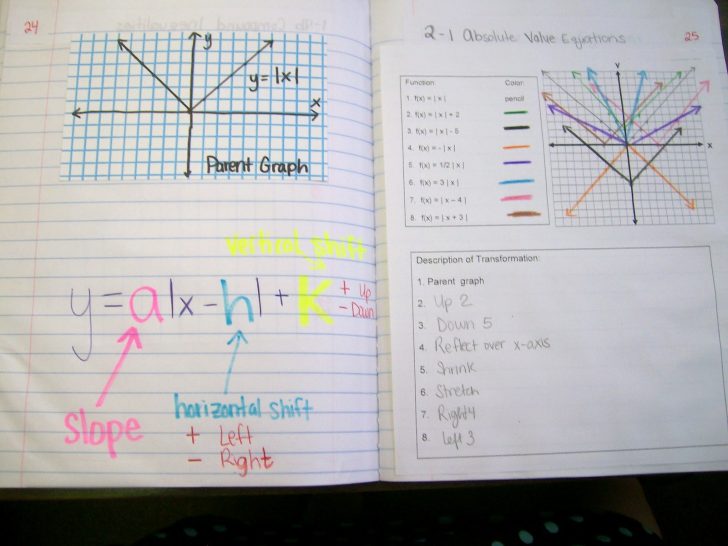 24
y
y=|x|
x
Parent Graph
vertical shift
y = a|x - h| + k
+ up
- Down
slope
horizontal shift
+ Left
- Right
2-1 Absolute Value Equations
25
Function: Color:
1. f(x) = | x | pencil
2. f(x) = | x | + 2
3. f(x) = | x | - 5
4. f(x) = - | x |
5. f(x) = 1/2 | x |
6. f(x) = 3 | x |
7. f(x) = | x – 4 |
8. f(x) = | x + 3 |
y
x
Description of Transformation:
1. Parent graph
2. Up 2
3. Down 5
4. Reflect over x-axis
5. Shrink
6. Stretch
7. Right 4
8. Left 3